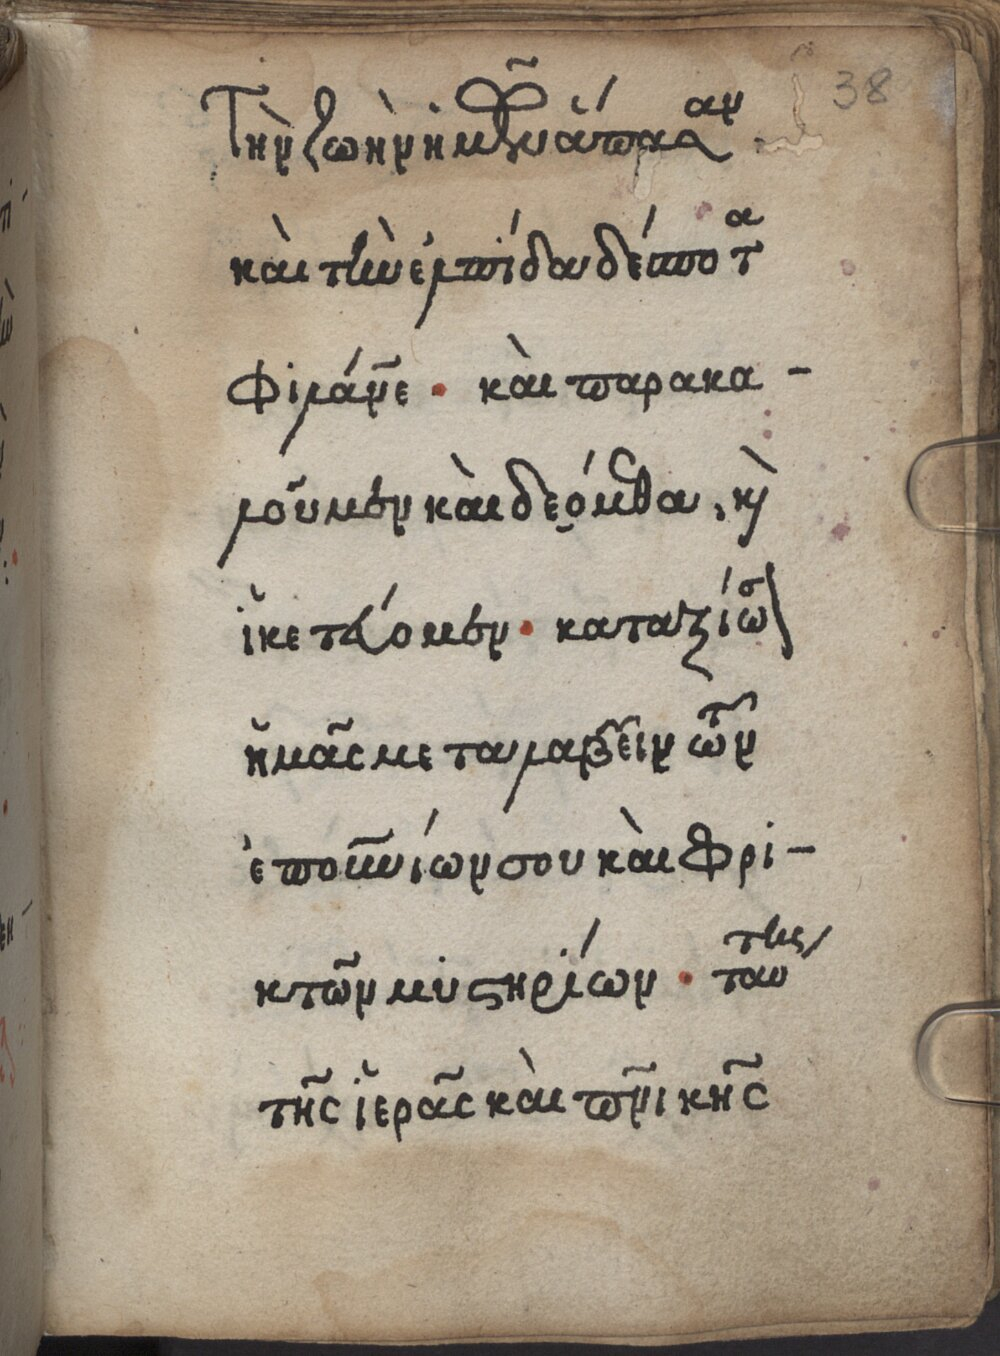 38
Τὴν ζωὴν ἡμῶν ἅπασαν
καὶ τὴν ἐλπίδα δέσποτα
φιλάνε · καὶ παρακα-
λοῦμέν καὶ δεόμεθα, κ̀
ἱκετεύομέν · καταξίωσ
ἡμᾶς μεταλαβεῖν τῶν
ἐπουνίων σου καὶ φρι-
κτῶν μυστηρίων · ταύτης
τῆς ἱερᾶς καὶ πνικῆς